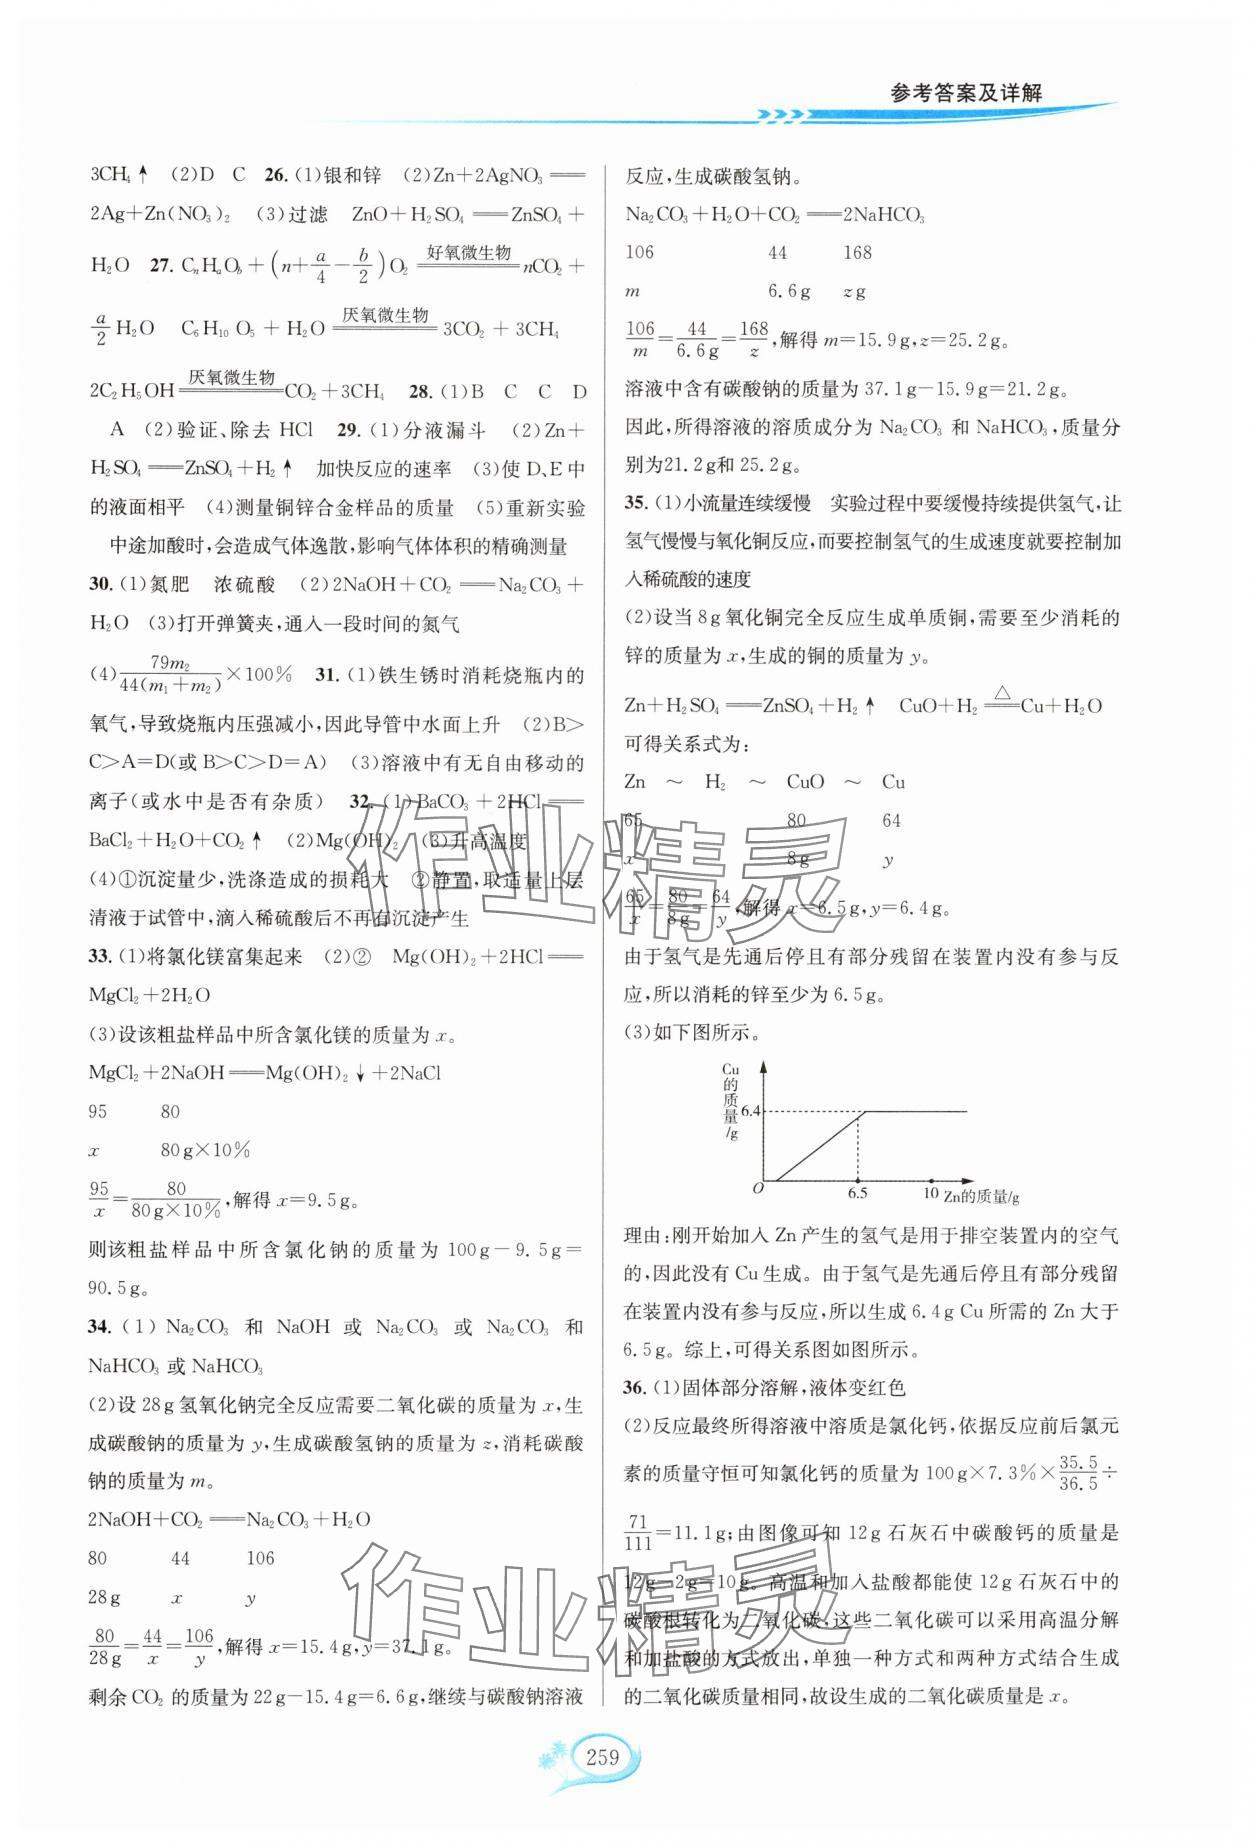 参考答案及详解
3CH₄↑ (2)D C 26.(1)银和锌 (2)Zn+2AgNO₃══
2Ag+Zn(NO₃)₂ (3)过滤 ZnO+H₂SO₄══ZnSO₄+
H₂O 27. CₙHₐO_b+(n+a/4−b/2)O₂ ══好氧微生物══ nCO₂+
a/2 H₂O C₆H₁₀O₅+H₂O ══厌氧微生物══ 3CO₂+3CH₄
2C₂H₅OH ══厌氧微生物══ CO₂+3CH₄ 28.(1)B C C D
A (2)验证、除去 HCl 29.(1)分液漏斗 (2)Zn+
H₂SO₄══ZnSO₄+H₂↑ 加快反应的速率 (3)使 D、E 中
的液面相平 (4)测量铜锌合金样品的质量 (5)重新实验
中途加酸时,会造成气体逸散,影响气体体积的精确测量
30.(1)氮肥 浓硫酸 (2)2NaOH+CO₂══Na₂CO₃+
H₂O (3)打开弹簧夹,通入一段时间的氮气
(4)79m₂/44(m₁+m₂)×100% 31.(1)铁生锈时消耗烧瓶内的
氧气,导致烧瓶内压强减小,因此导管中水面上升 (2)B>
C>A=D(或 B>C>D=A) (3)溶液中有无自由移动的
离子(或水中是否有杂质) 32.(1)BaCO₃+2HCl══
BaCl₂+H₂O+CO₂↑ (2)Mg(OH)₂ (3)升高温度
(4)①沉淀量少,洗涤造成的损耗大 ②静置,取适量上层
清液于试管中,滴入稀硫酸后不再有沉淀产生
33.(1)将氯化镁富集起来 (2)② Mg(OH)₂+2HCl══
MgCl₂+2H₂O
(3)设该粗盐样品中所含氯化镁的质量为 x。
MgCl₂+2NaOH══Mg(OH)₂↓+2NaCl
95 80
x 80g×10%
95/x=80/80g×10%,解得 x=9.5g。
则该粗盐样品中所含氯化钠的质量为 100g−9.5g=
90.5g。
34.(1)Na₂CO₃ 和 NaOH 或 Na₂CO₃ 或 Na₂CO₃ 和
NaHCO₃ 或 NaHCO₃
(2)设 28g 氢氧化钠完全反应需要二氧化碳的质量为 x,生
成碳酸钠的质量为 y,生成碳酸氢钠的质量为 z,消耗碳酸
钠的质量为 m。
2NaOH+CO₂══Na₂CO₃+H₂O
80 44 106
28g x y
80/28g=44/x=106/y,解得 x=15.4g,y=37.1g。
剩余 CO₂ 的质量为 22g−15.4g=6.6g,继续与碳酸钠溶液
反应,生成碳酸氢钠。
Na₂CO₃+H₂O+CO₂══2NaHCO₃
106 44 168
m 6.6g zg
106/m=44/6.6g=168/z,解得 m=15.9g,z=25.2g。
溶液中含有碳酸钠的质量为 37.1g−15.9g=21.2g。
因此,所得溶液的溶质成分为 Na₂CO₃ 和 NaHCO₃,质量分
别为21.2g和 25.2g。
35.(1)小流量连续缓慢 实验过程中要缓慢持续提供氢气,让
氢气慢慢与氧化铜反应,而要控制氢气的生成速度就要控制加
入稀硫酸的速度
(2)设当 8g 氧化铜完全反应生成单质铜,需要至少消耗的
锌的质量为 x,生成的铜的质量为 y。
Zn+H₂SO₄══ZnSO₄+H₂↑ CuO+H₂ ══△══ Cu+H₂O
可得关系式为:
Zn ～ H₂ ～ CuO ～ Cu
65 80 64
x 8g y
65/x=80/8g=64/y,解得 x=6.5g,y=6.4g。
由于氢气是先通后停且有部分残留在装置内没有参与反
应,所以消耗的锌至少为 6.5g。
(3)如下图所示。
Cu的质量/g
6.4
O 6.5 10 Zn的质量/g
理由:刚开始加入 Zn 产生的氢气是用于排空装置内的空气
的,因此没有 Cu 生成。由于氢气是先通后停且有部分残留
在装置内没有参与反应,所以生成 6.4g Cu 所需的 Zn 大于
6.5g。综上,可得关系图如图所示。
36.(1)固体部分溶解,液体变红色
(2)反应最终所得溶液中溶质是氯化钙,依据反应前后氯元
素的质量守恒可知氯化钙的质量为 100g×7.3%×35.5/36.5÷
71/111=11.1g;由图像可知 12g 石灰石中碳酸钙的质量是
12g−2g=10g。高温和加入盐酸都能使 12g 石灰石中的
碳酸根转化为二氧化碳,这些二氧化碳可以采用高温分解
和加盐酸的方式放出,单独一种方式和两种方式结合生成
的二氧化碳质量相同,故设生成的二氧化碳质量是 x。
作业精灵
作业精灵
259